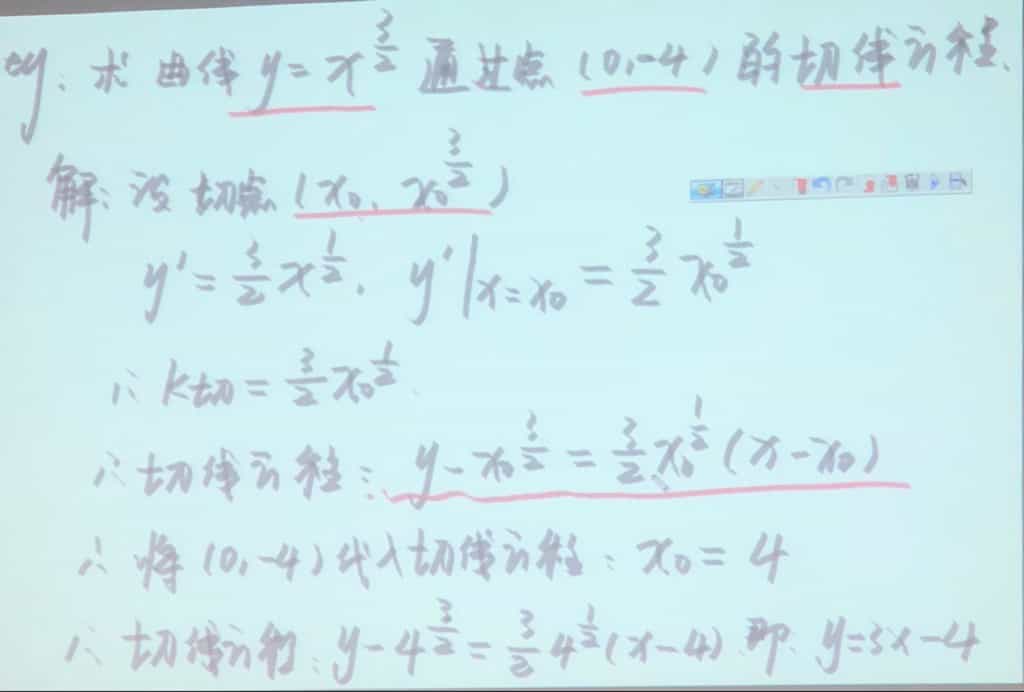 eg: 求曲线 y = x^{3/2} 通过点 (0,-4) 的切线方程.
解: 设切点 (x₀, x₀^{3/2})
y' = 3/2 x^{1/2}, y'|x=x₀ = 3/2 x₀^{1/2}
∴ k切 = 3/2 x₀^{1/2}
∴ 切线方程: y - x₀^{3/2} = 3/2 x₀^{1/2} (x - x₀)
∴ 将 (0,-4) 代入切线方程: x₀ = 4
∴ 切线方程: y - 4^{3/2} = 3/2 4^{1/2} (x - 4) 即 y = 3x - 4